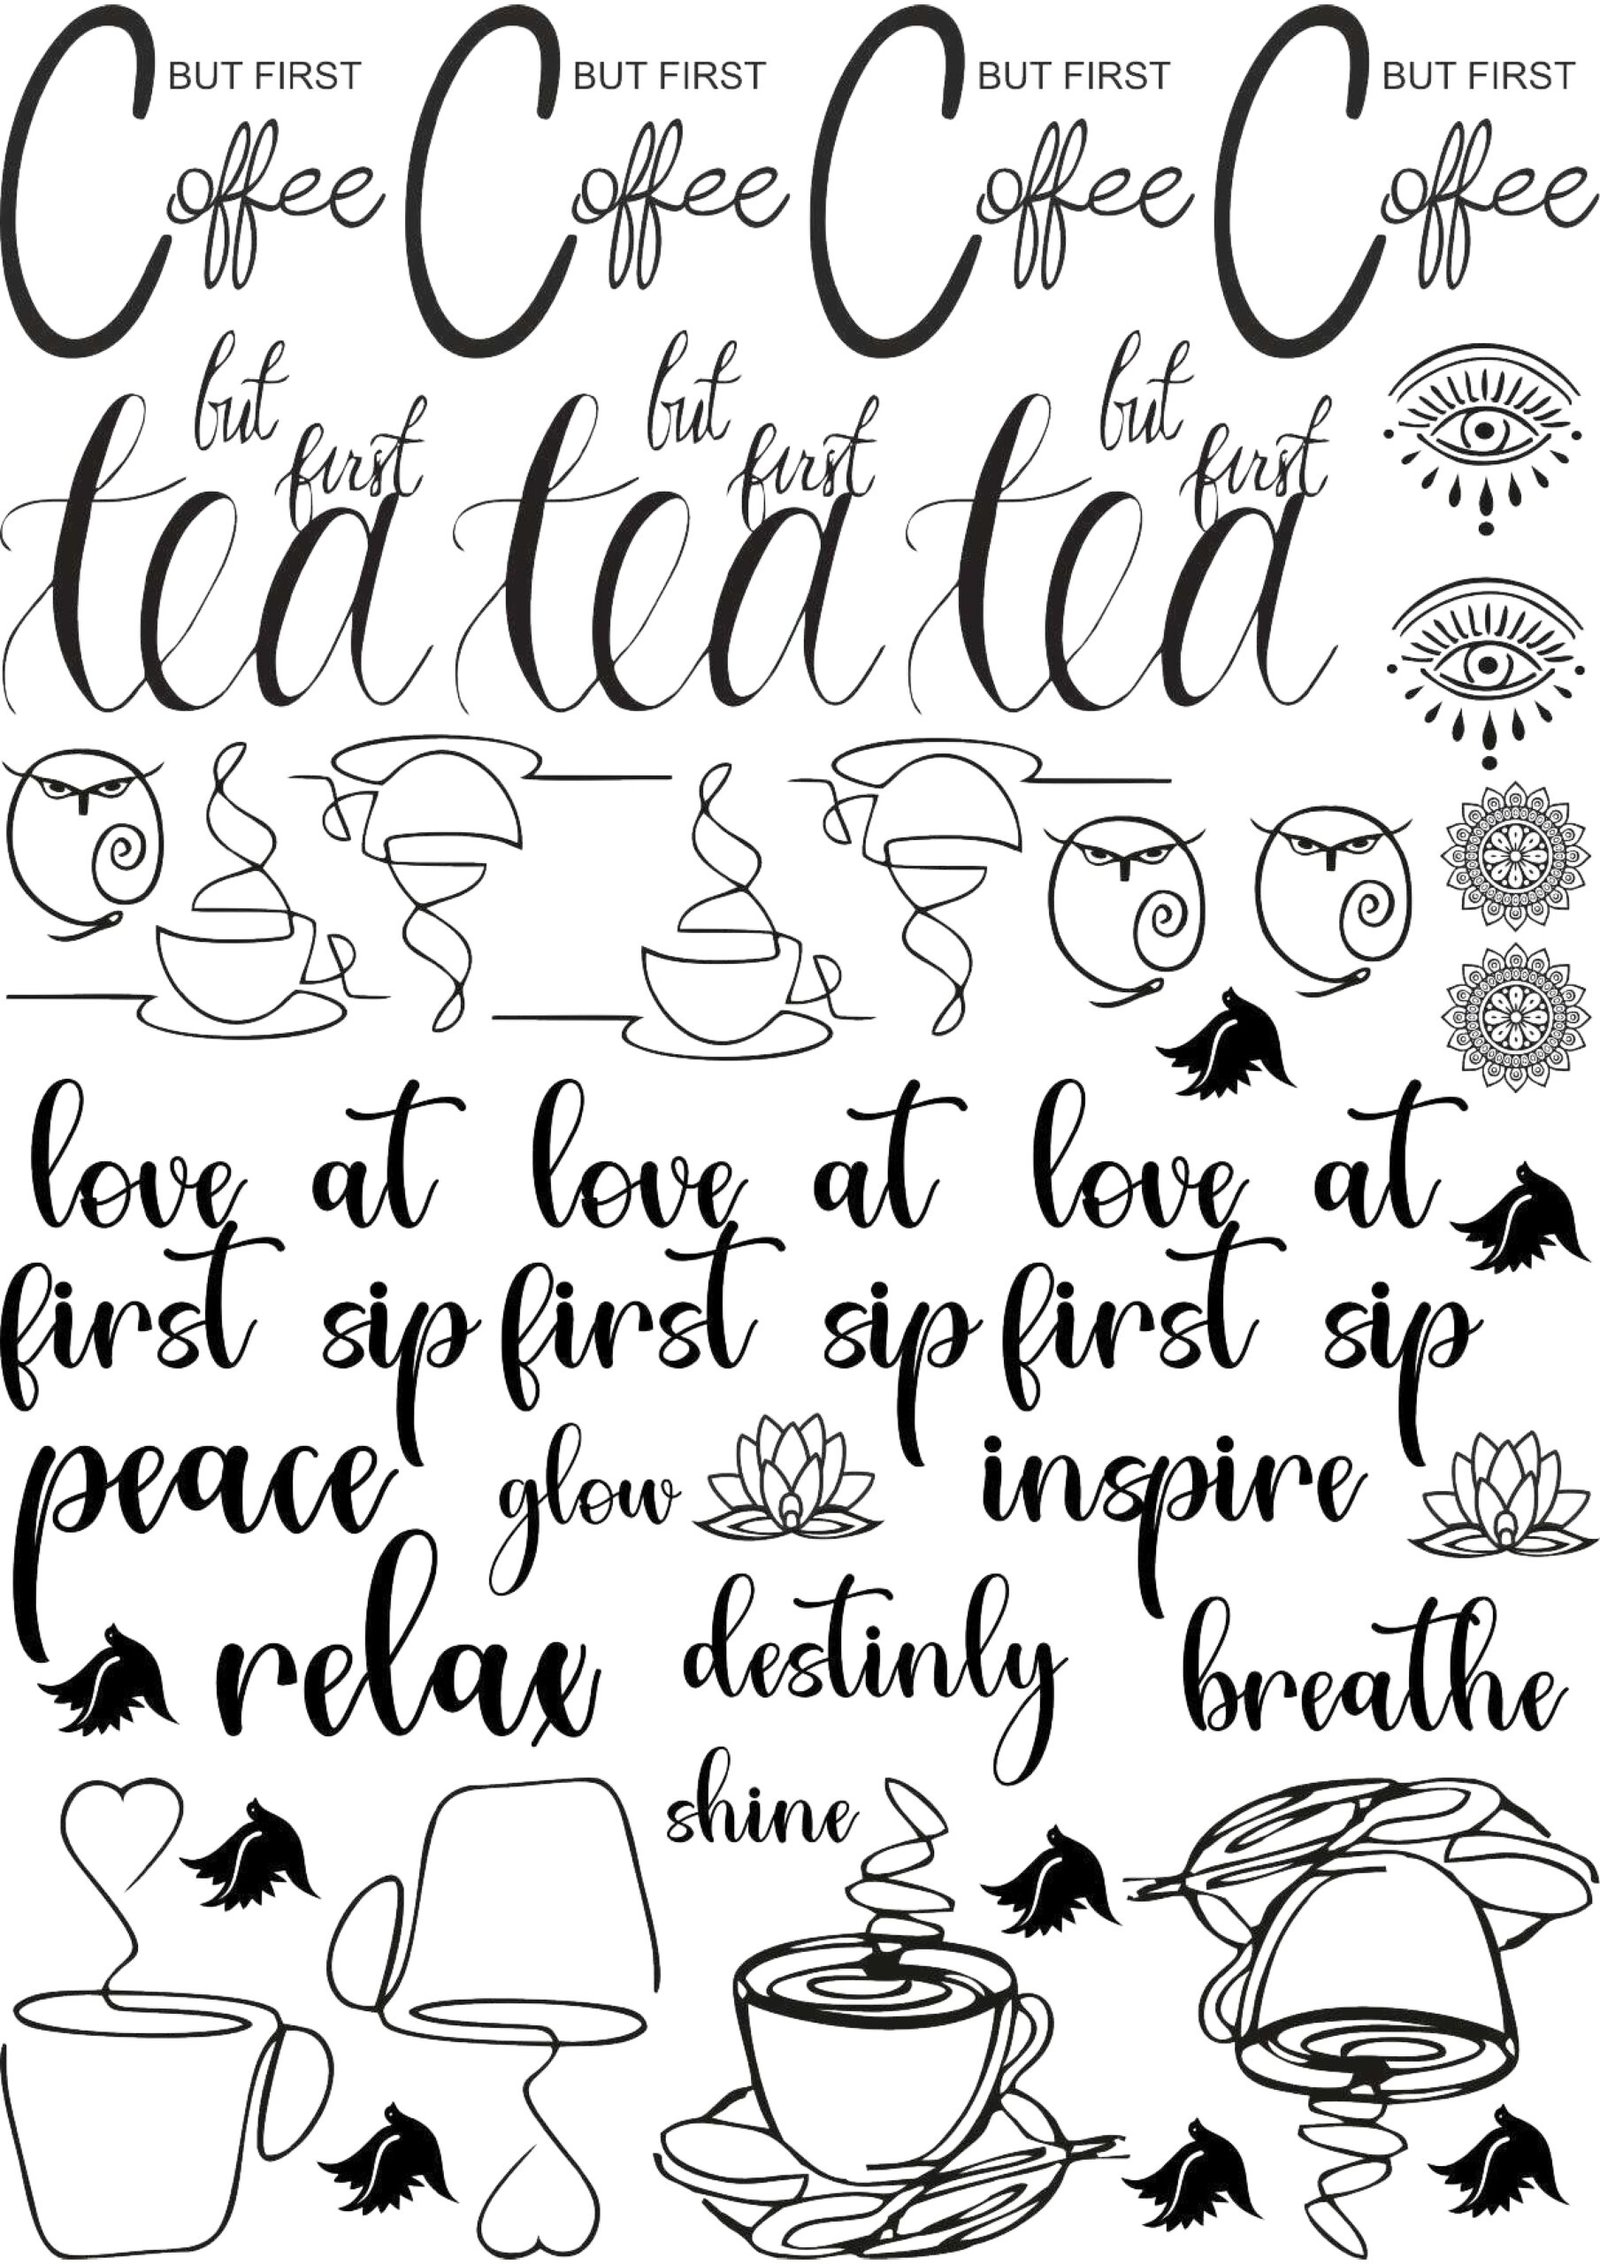 BUT FIRST BUT FIRST BUT FIRST BUT FIRST
Coffee Coffee Coffee Coffee
but but but
first first first
tea tea tea
love at love at love at
first sip first sip first sip
peace glow inspire
relax destinly breathe
shine